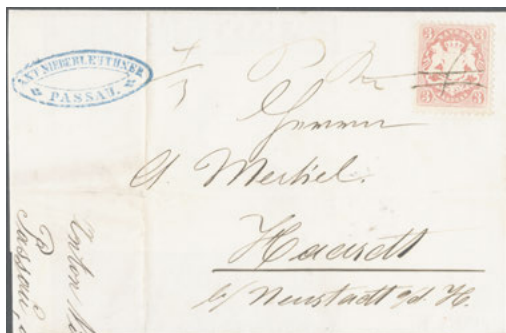 ANT. NIEDERLEUTHNER
PASSAU.
7/3
3 3
Herrn
A. Merkel.
Haardt
b/ Neustadt a/d. H.
Anton
Passau,